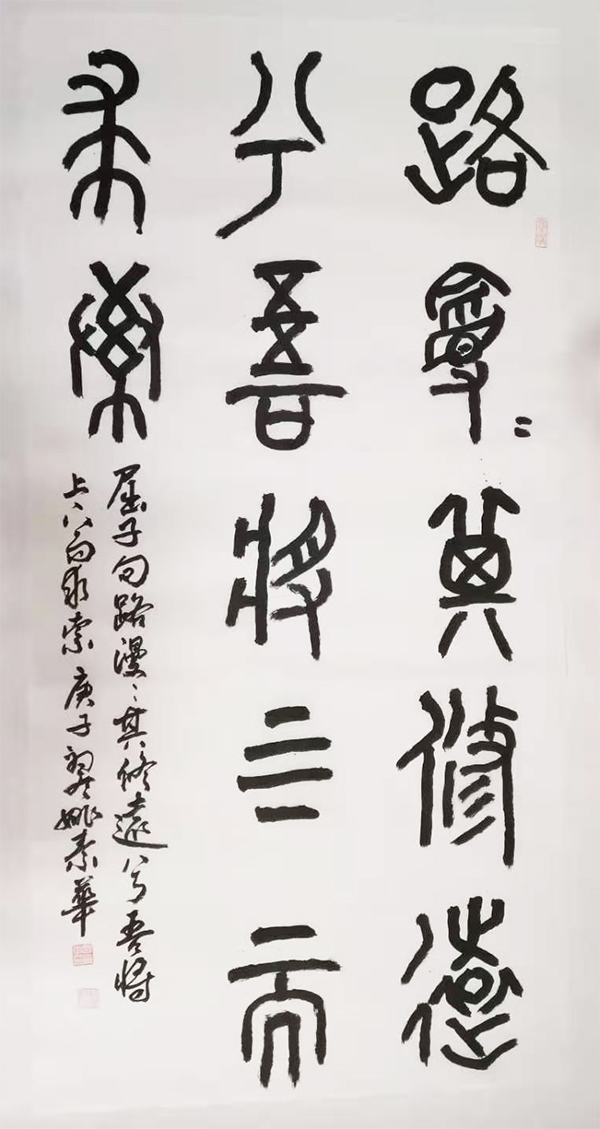 路曼〻其修遠
兮吾將上下而
求索
屈子句路漫〻其修遠兮吾將
上下而求索 庚子初冬姚素華